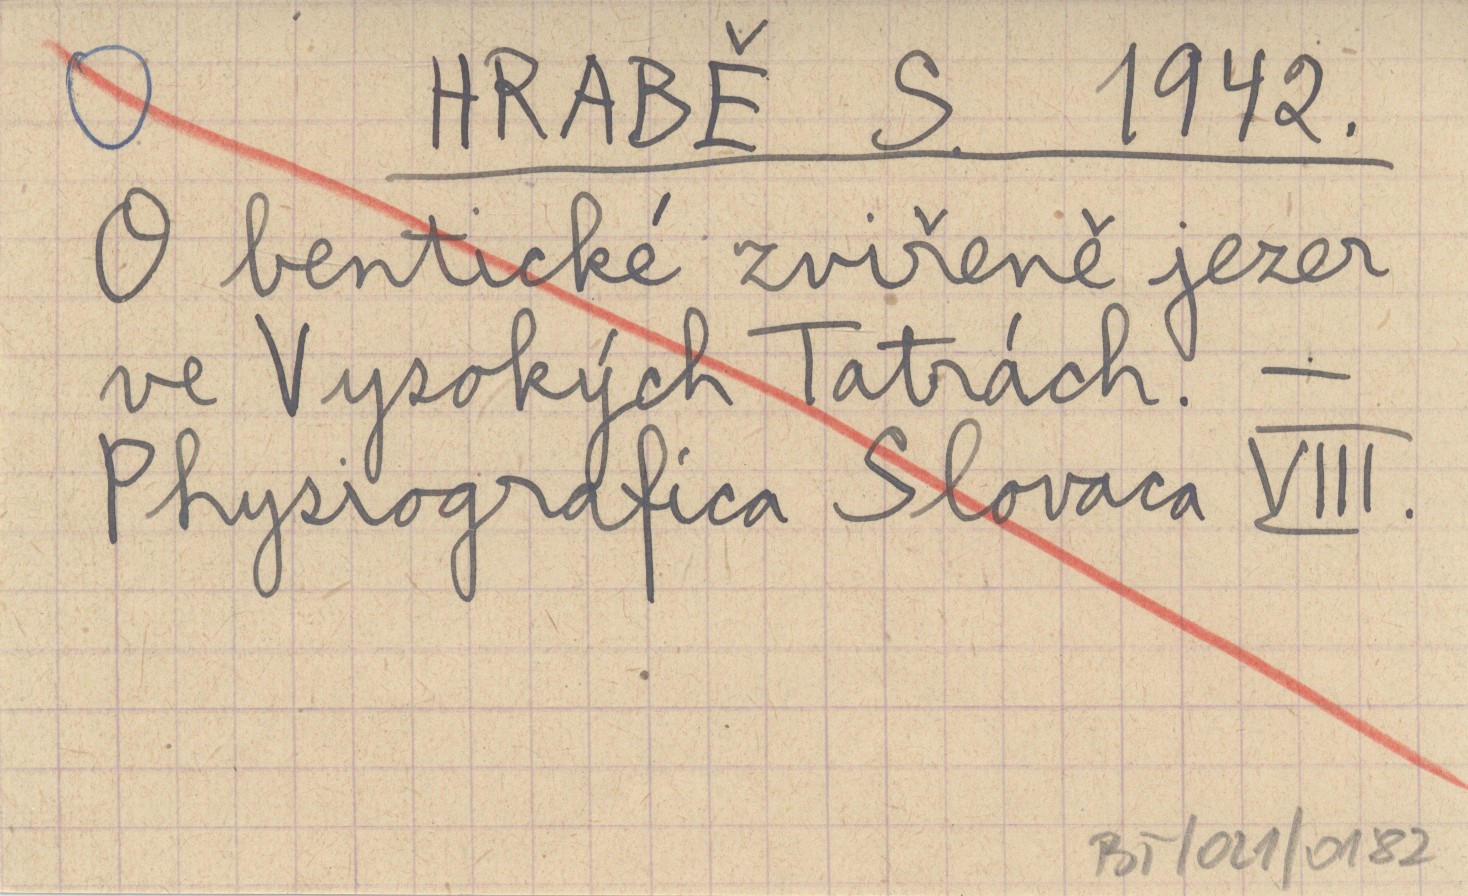 HRABĚ S. 1942.
O bentické zviřeně jezer
ve Vysokých Tatrách. —
Physiografica Slovaca VIII.
BT/021/0182